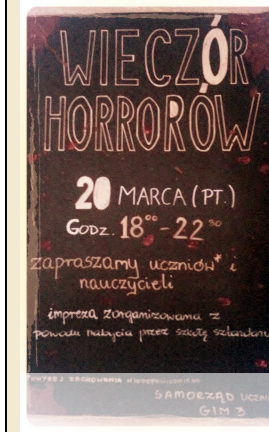 WIECZÓR
HORRORÓW
20 MARCA (PT.)
GODZ. 18⁰⁰-22³⁰
zapraszamy uczniów* i
nauczycieli
impreza zorganizowana z
powodu nabycia przez szkołę
SAMORZĄD UCZN
GIM 3